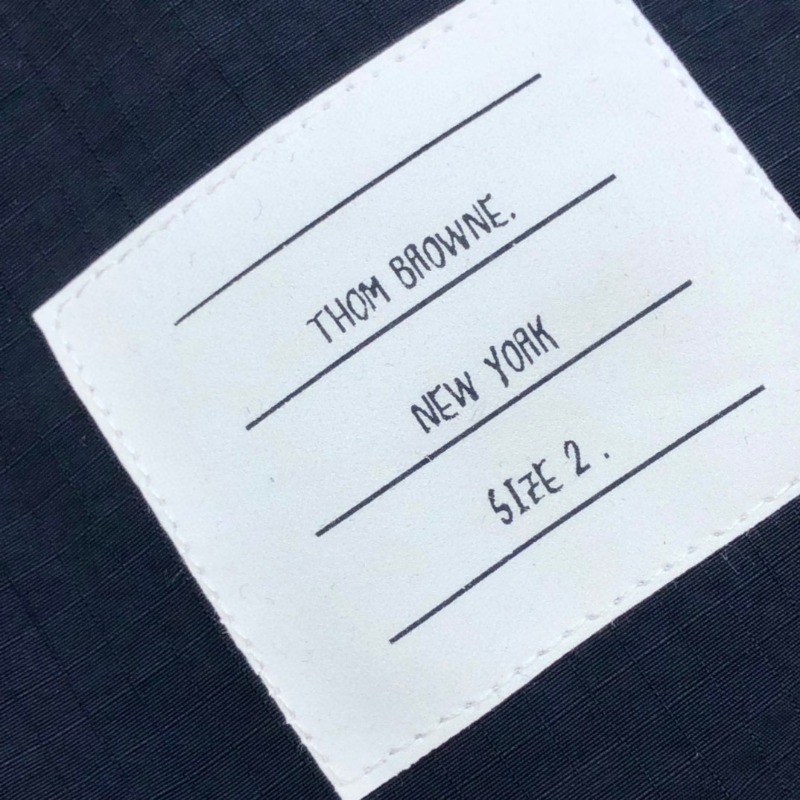 THOM BROWNE.
NEW YORK
SIZE 2 .